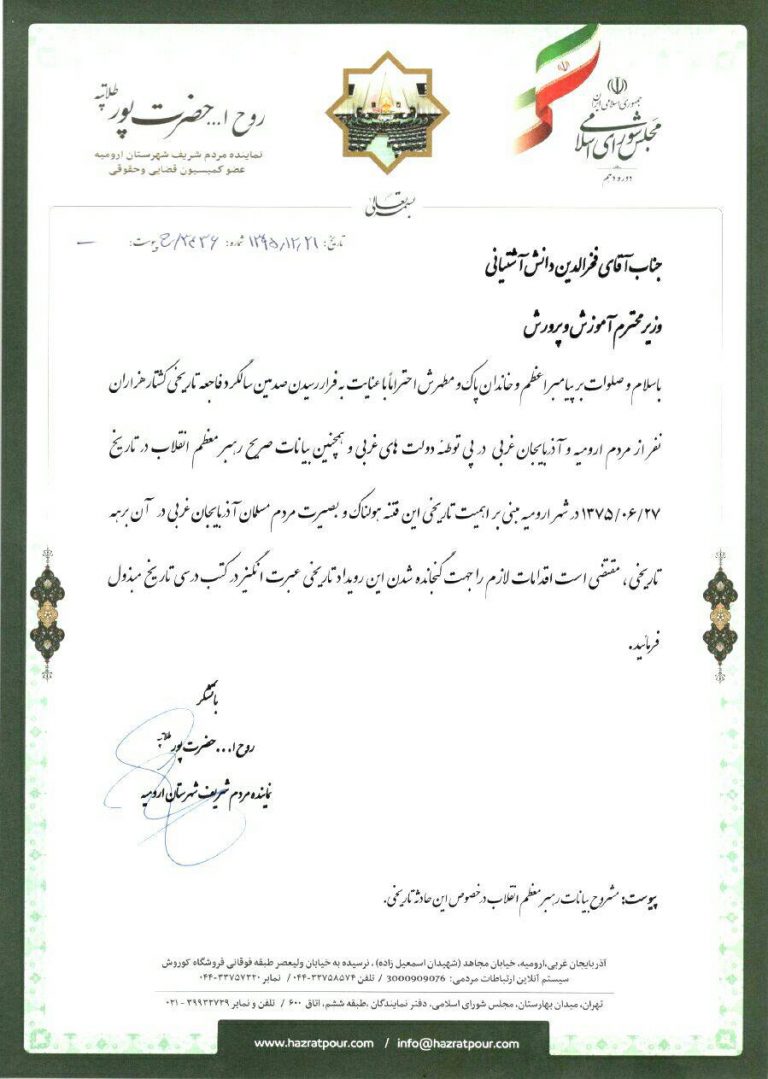 جمهوری اسلامی ایران
مجلس شورای اسلامی
دوره دهم
روح ا... حضرت پور طلاتپه
نماینده مردم شریف شهرستان ارومیه
عضو کمیسیون قضایی وحقوقی
بسمه تعالی
تاریخ: ۱۳۹۵/۱۲/۲۱ شماره: پیوست: —
جناب آقای فخرالدین دانش آشتیانی
وزیر محترم آموزش و پرورش
باسلام و صلوات بر پیامبر اعظم و خاندان پاک و مطهرش احتراماً با عنایت به فرارسیدن صدمین سالگرد فاجعه تاریخی کشتار هزاران
نفر از مردم ارومیه و آذربایجان غربی در پی توطئه دولت های غربی و همچنین بیانات صریح رهبر معظم انقلاب در تاریخ
۱۳۷۵/۰۶/۲۷ در شهر ارومیه مبنی بر اهمیت تاریخی این فتنه هولناک و بصیرت مردم مسلمان آذربایجان غربی در آن برهه
تاریخی، مقتضی است اقدامات لازم را جهت گنجانده شدن این رویداد تاریخی عبرت انگیز در کتب درسی تاریخ مبذول
فرمائید.
باتشکر
روح ا... حضرت پور طلاتپه
نماینده مردم شریف شهرستان ارومیه
پیوست: مشروح بیانات رهبر معظم انقلاب درخصوص این حادثه تاریخی.
آذربایجان غربی،ارومیه، خیابان مجاهد (شهیدان اسمعیل زاده) ، نرسیده به خیابان ولیعصر طبقه فوقانی فروشگاه کوروش
سیستم آنلاین ارتباطات مردمی: 3000909076 / تلفن ۳۳۷۵۸۵۷۴-۰۴۴ / نمابر ۳۳۷۵۷۳۲۰-۰۴۴
تهران، میدان بهارستان، مجلس شورای اسلامی، دفتر نمایندگان ،طبقه ششم، اتاق ۶۰۰ / تلفن و نمابر ۳۹۹۳۲۷۳۹ - ۰۲۱
www.hazratpour.com / info@hazratpour.com